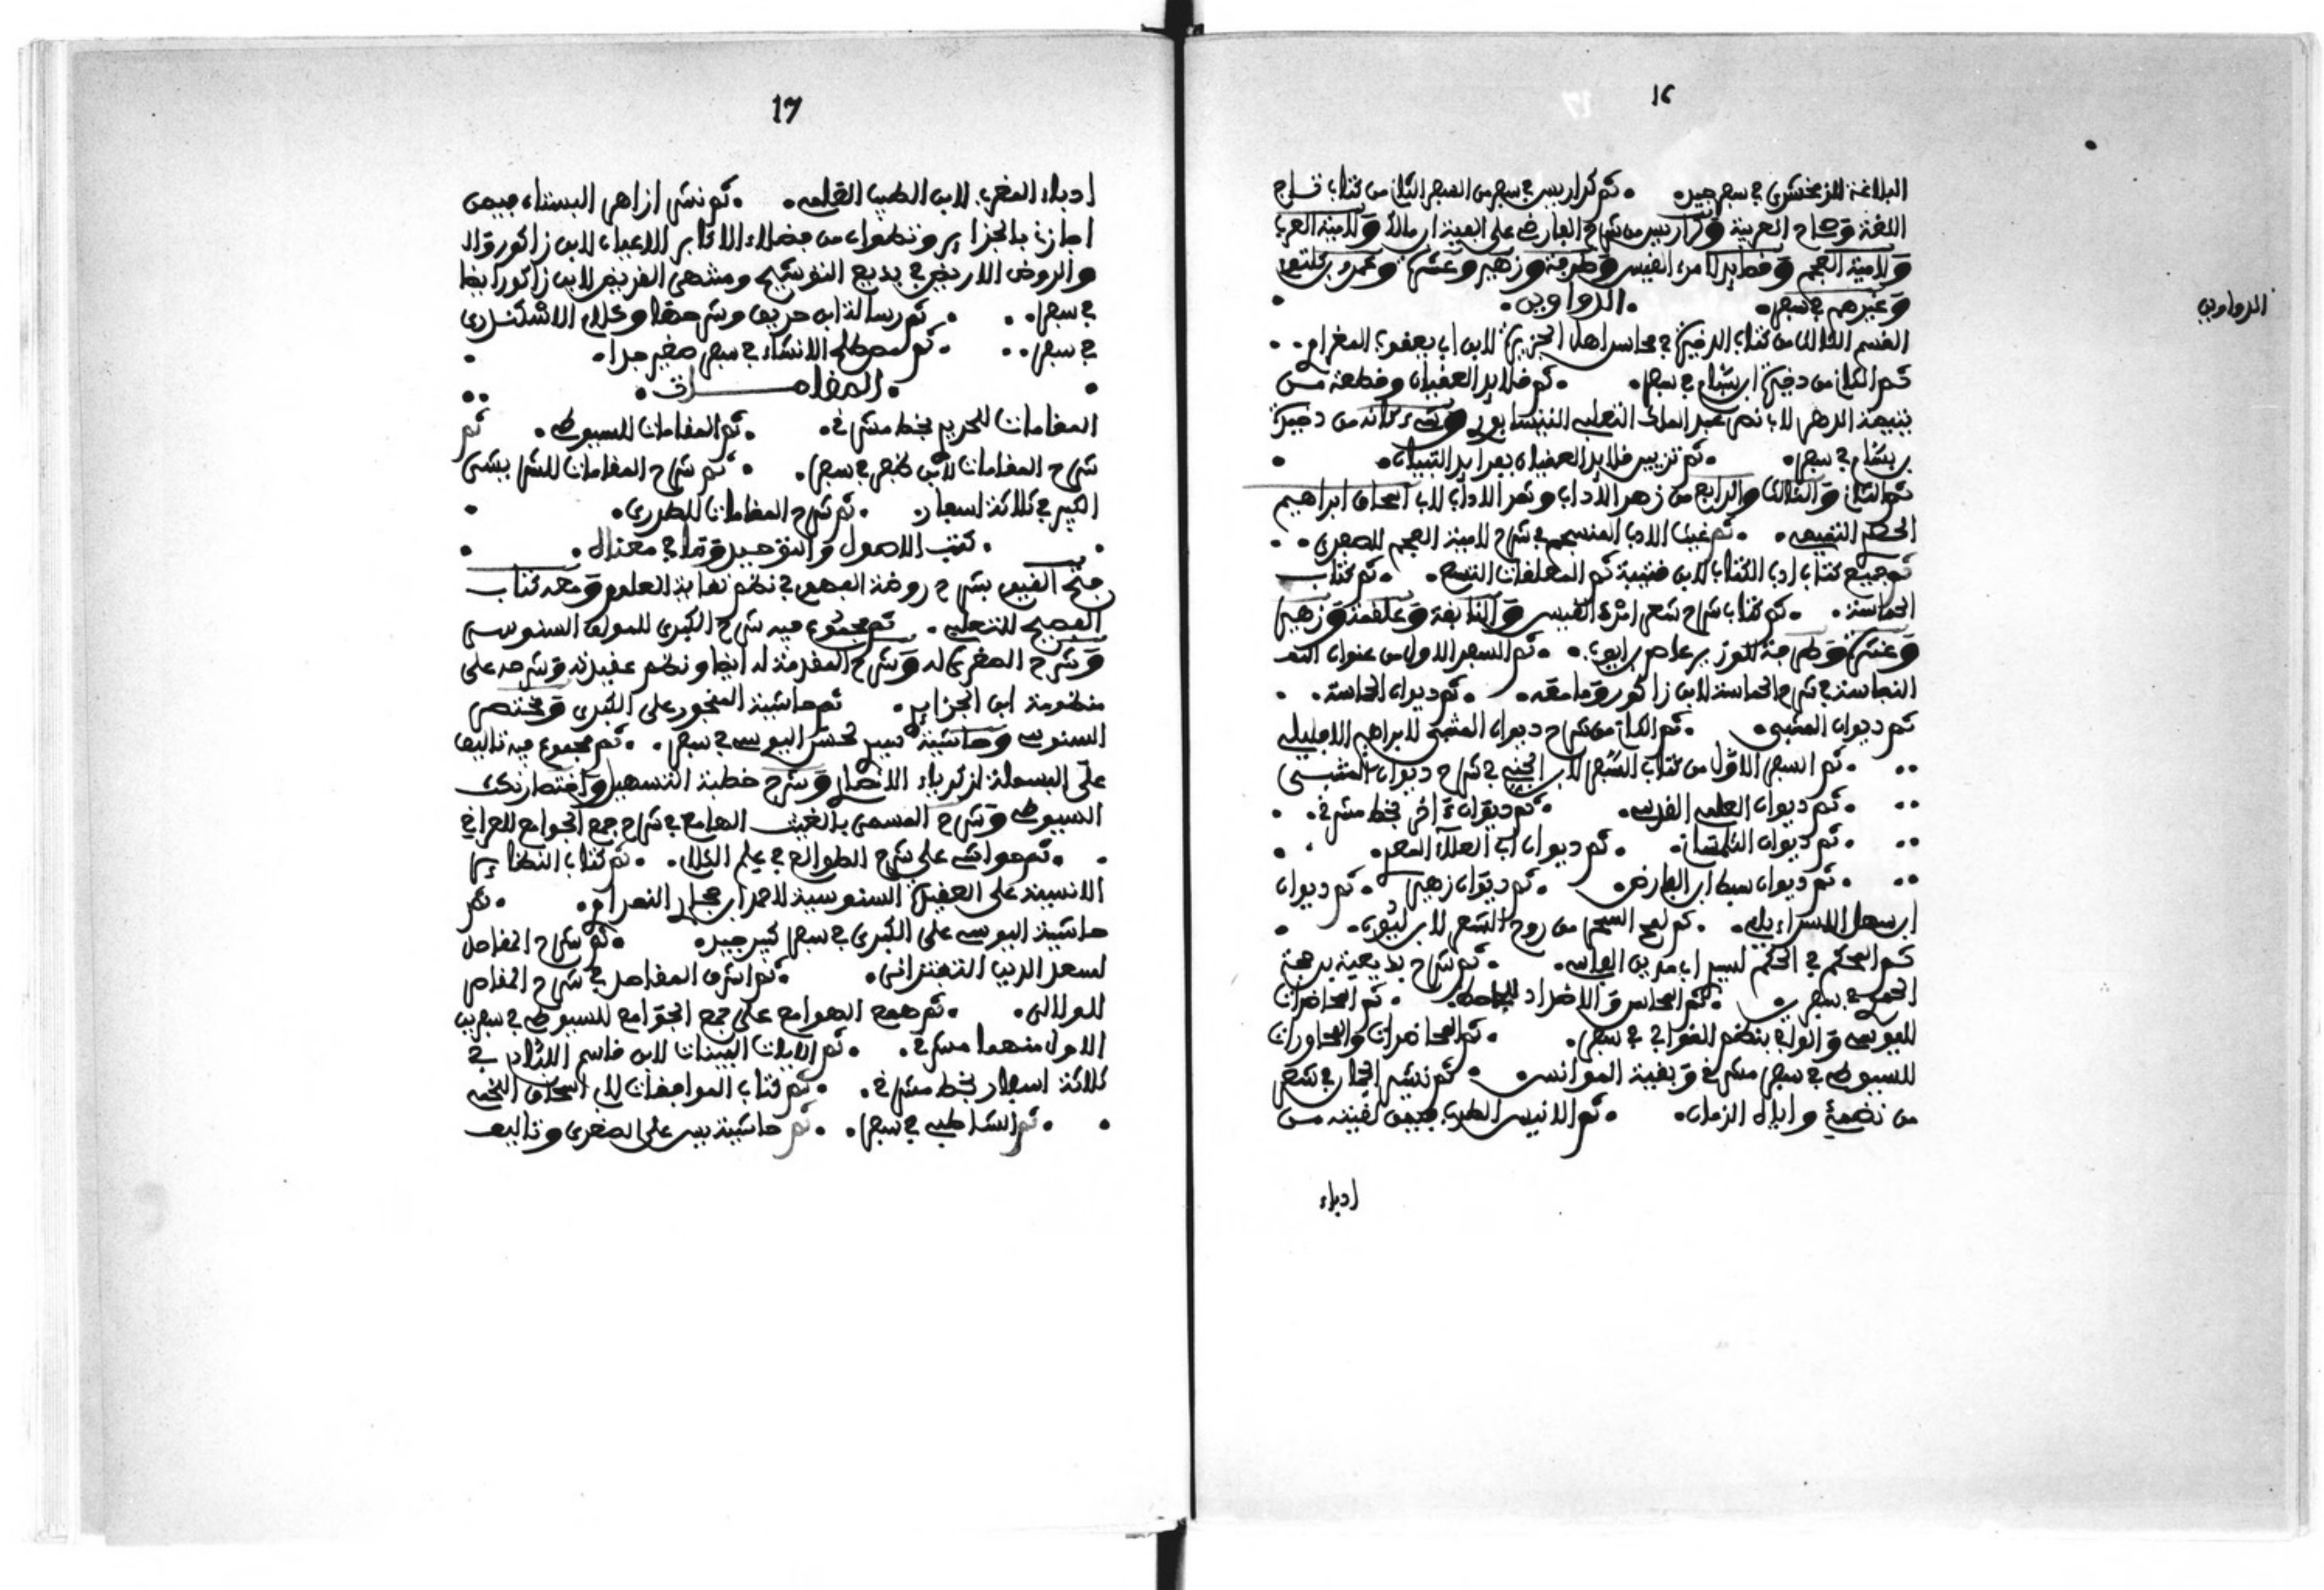 16
البلاغة للزمخشري في سفر جيد . ثم كراريس في سفر من السفر الثاني من كتاب تاج
اللغة وصحاح العربية وكراريس من شرح الفارضي على الفية ابن مالك ولامية العرب
ولامية العجم وقصايد لامرء القيس وطرفة وزهير وعنترة وعمرو بن كلثوم
وغيرهم في سفر . الدواوين .
الدواوين
القسم الثالث من كتاب الذخيرة في محاسن اهل الجزيرة لابن ابي يعقوب المغراوي
ثم الثاني من ذخيرة ابن بسام في سفر . ثم قلايد العقيان وقطعة من
يتيمة الدهر لابي نصر عبد الملك الثعلبي النيسابوري وشيء كانه من ذخيرة
بن بسام في سفر . ثم تزيين قلايد العقيان بفرايد التبيان .
ثم الثاني والثالث والرابع من زهر الأداب وثمر الالباب لابي اسحاق ابراهيم
الحصري القيسي . ثم غيث الادب المنسجم في شرح لامية العجم للصفدي .
ثم جميع كتاب ادب الكتاب لابن قتيبة ثم المعلقات التسع . ثم كتاب
الحماسة . ثم كتاب شرح شعر امرء القيس والنابغة وعلقمة وزهير
وعنترة وطرفة للوزير عاصم بن ايوب . ثم السفر الاول من عنوان
النفاسة في شرح الحماسة لابن زاكور وما معه . ثم ديوان الحماسة .
ثم ديوان المتنبي . ثم الثاني من شرح ديوان المتنبي لابراهيم الافليلي
ثم السفر الاول من كتاب الفسر لابن الجني في شرح ديوان المتنبي
ثم ديوان العلمي القدسي . ثم ديوان ءاخر بخط مشرقي .
ثم ديوان التلمساني . ثم ديوان ابي العلاء المعري .
ثم ديوان سبط ابن الفارض . ثم ديوان زهير . ثم ديوان
ابن سهل الاسراءيلي . ثم لمح السحر من روح الشعر لابن ليون .
ثم المحكم في الحكم لسيد ابي مدين الفاسي . ثم شرح بديعية بن حجة
الحموي في سفرين . ثم المحاسن والاضداد للجاحظ . ثم المحاضرات
لليوسي والوافي بنظم القوافي في سفر . ثم المحاضرات والمحاورات
للسيوطي في سفر مشرقي وبغية الموانس . ثم تشبه الخمار في شعر
من نضمه وابلاه الزمان . ثم الانيس المطرب فيمن لقيته من
ادباء
17
ادباء المغرب لابن الطيب العلمي . ثم نشر ازاهر البستان فيمن
اجازني بالجزاير وتطوان من فضلاء الاكابر والاعيان لابن زاكور وقال
والروض الاريض في بديع التوشيح ومنتهى القريض لابن زاكور ايضا
في سفر . ثم رسالة ابن حريق وشرحها وكلام الاشكندري
في سفر . ثم مصطلح الانشاء في سفر صغير جدا .
المقامات
المقامات للحريري بخط مشرقي . ثم المقامات للسيوطي . ثم
شرح المقامات لابن ظفر في سفر . ثم شرح المقامات للشريشي
الكبير في ثلاثة اسفار . ثم شرح المقامات للمطرزي .
كتب الاصول والتوحيد وما في معناه .
فتح القيوم بشرح روضة الفهوم في نظم نقاية العلوم ومعه كتاب
الفصيح للثعلبي . ثم مجموع فيه شرح الكبرى للمولف السنوسي
وشرح الصغرى له وشرح المقدمة له ايضا ونظم عقيدته وشرحه على
منظومة ابن الجزاير . ثم حاشية المنجور على الكبرى ومختصر
السنوسي وحاشية سيد لحسن اليوسي في سفر . ثم مجموع فيه تاليف
على البسملة لزكرياء الانصاري وشرح خطبة التسهيل واختصار نكت
السيوطي وشرح المسمى بالغيث الهامع في شرح جمع الجوامع للعراقي
ثم حواشي على شرح الطوالع في علم الكلام . ثم كتاب النظاير
الانسية على العقيدة السنوسية لاحمد ابن محمد النصراوي . ثم
حاشية اليوسي على الكبرى في سفر كبير جيد . ثم شرح المقاصد
لسعد الدين التفتزاني . ثم اشرف المقاصد في شرح المقاصد
للولالي . ثم همع الهوامع على جمع الجوامع للسيوطي في سفرين
الاول منهما مشرقي . ثم الايات البينات لابن قاسم العبادي في
ثلاثة اسفار بخط مشرقي . ثم كتاب الموافقات لابي اسحاق اللخمي
ثم الشاطبي في سفر . ثم حاشية يس على الصغرى وتاليف